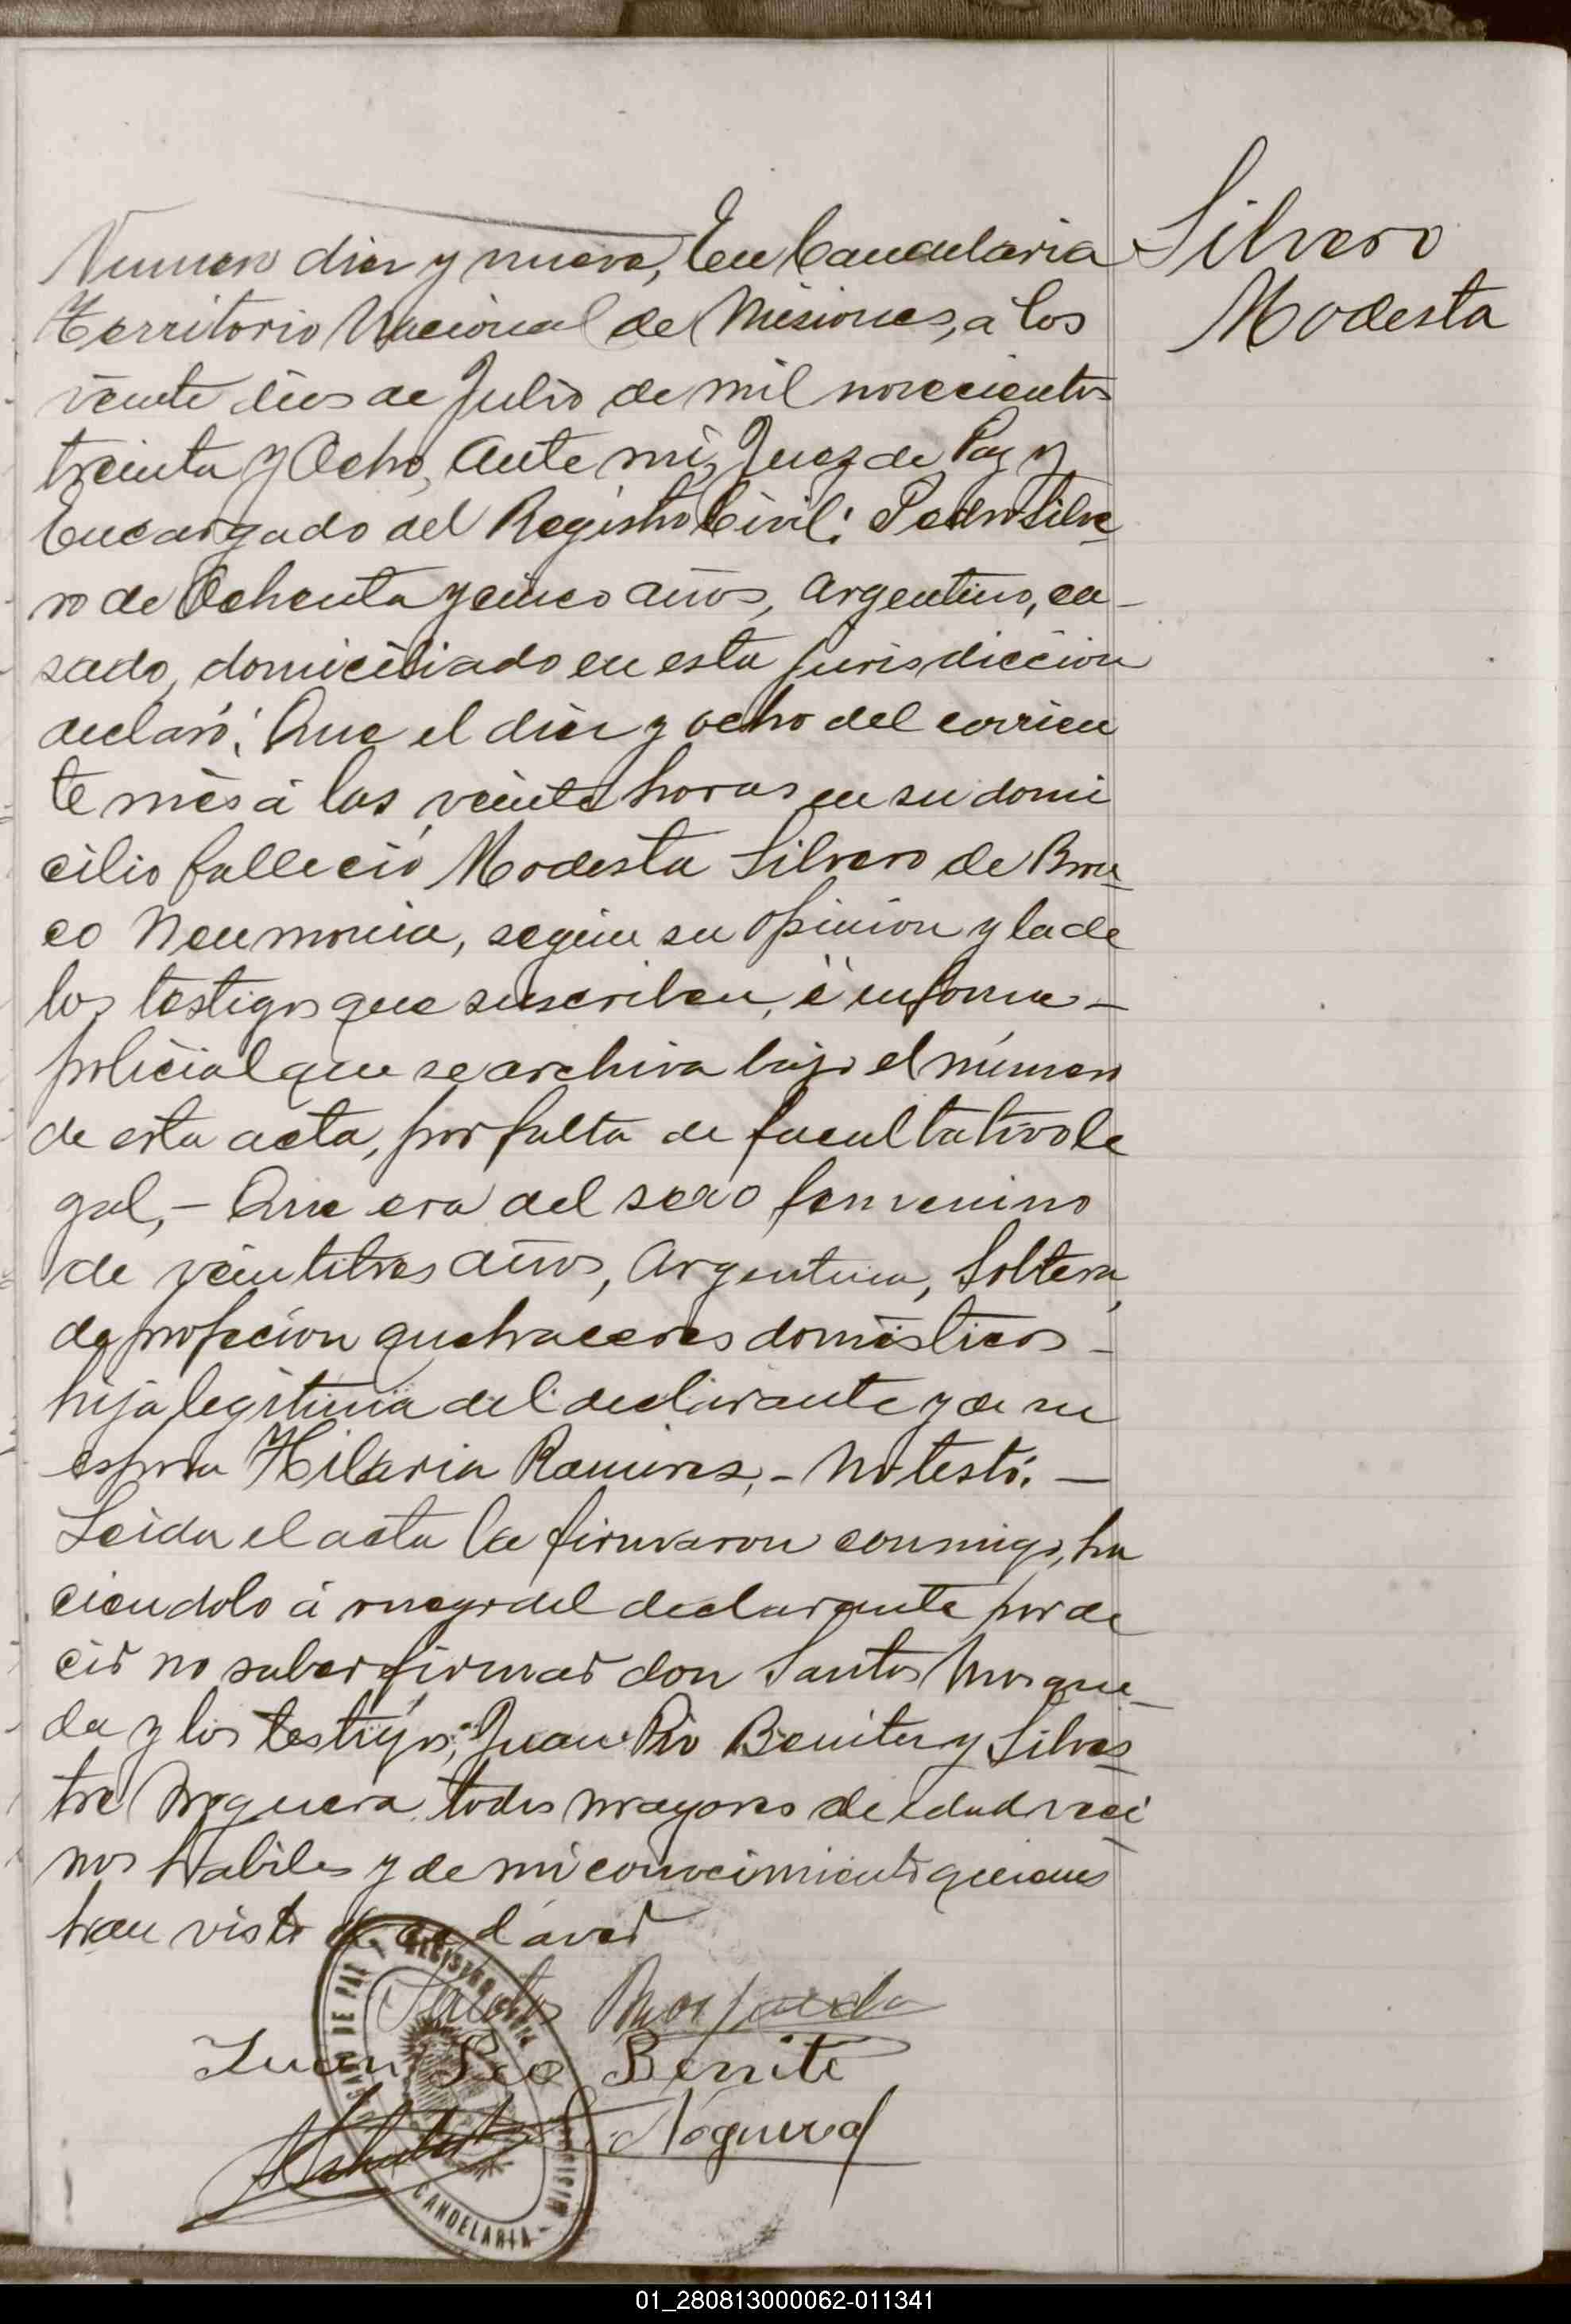 Numero diez y nueve, En Candelaria
Territorio Nacional de Misiones, á los
veinte dias de Julio de mil novecientos
treinta y Ocho, Ante mi, Juez de Paz y
Encargado del Registro Civil: Pedro Silve
ro de Ochenta y cinco años, Argentino, ca-
sado, domiciliado en esta jurisdiccion
declaró: Que el diez y ocho del corrien
te mes á las veinte horas en su domi
cilio falleció Modesta Silvero de Bron
co Neumonia, según su opinion y la de
los testigos que suscriben, é informe-
policial que se archiva bajo el número
de esta acta, por falta de facultativo le
gal,- Que era del sexo femenino
de veintitres años, Argentina, Soltera,
de profecion quehaceres domésticos-
hija legítima del declarante y de su
esposa Hilaria Ramirez,- No testó.-
Leida el acta la firmaron conmigo, ha
ciendolo á ruego del declarante por de
cir no saber firmar don Santos Mosque
da y los testigos; Juan Pio Benitez y Silves
tre Noguera todos mayores de edad veci
nos habiles y de mi conocimiento quienes
han visto el cadáver
Silvero
Modesta
Santos Mosqueda
Juan Pio Benite
S. Noguera
JUZGADO DE PAZ Y REGISTRO CIVIL
CANDELARIA - MISIONES
01_280813000062-011341